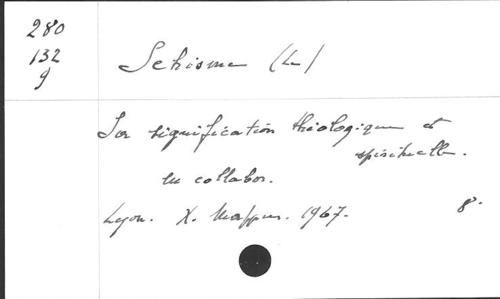 280
132
9
Schisme (Le)
Sa signification théologique et
spirituelle.
en collabor.
Lyon. X. Mappus. 1967. 8°